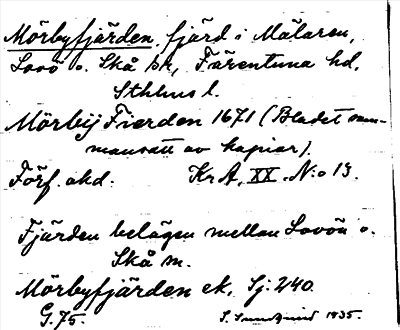 Mörbyfjärden, fjärd i Mälaren,
Lovö o. Skå sk, Färentuna hd,
Sthlms l.
Mörbij Fierden 1671 (Bladet sam-
mansatt av kopior).
Förf. okd. Kr A, XX. N:o 13.
Fjärden belägen mellan Lovön o.
Skå m.
Mörbyfjärden ek, Sj: 240.
G. 75. S. Sundqvist 1935.